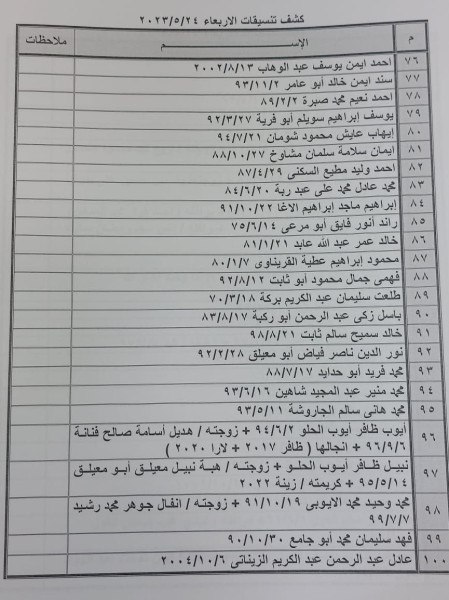 كشف تنسيقات الاربعاء ٢٠٢٣/٥/٢٤
م الإســـم ملاحظات
٧٦ احمد ايمن يوسف عبد الوهاب ٢٠٠٢/٨/١٣
٧٧ سند ايمن خالد أبو عامر ٩٣/١١/٢
٧٨ احمد نعيم محمد صبرة ٨٩/٢/٢
٧٩ يوسف إبراهيم سويلم أبو قرية ٩٢/٣/٢٧
٨٠ إيهاب عايش محمود شومان ٩٤/٧/٢١
٨١ ايمان سلامة سلمان مشاوخ ٨٨/١٠/٢٧
٨٢ احمد وليد مطيع السكنى ٨٧/٤/٢٩
٨٣ محمد عادل محمد على عبد ربة ٨٤/٦/٢٠
٨٤ إبراهيم ماجد إبراهيم الاغا ٩١/١٠/٢٢
٨٥ رائد أنور فايق أبو مرعى ٧٥/٦/١٤
٨٦ خالد عمر عبد الله عابد ٨١/١/٢١
٨٧ محمود إبراهيم عطية القريناوى ٨٠/١/٧
٨٨ فهمى جمال محمود أبو ثابت ٩٢/٨/١٢
٨٩ طلعت سليمان عبد الكريم بركة ٧٠/٣/١٨
٩٠ باسل زكى عبد الرحمن أبو ركبة ٨٣/٨/١٧
٩١ خالد سميح سالم ثابت ٩٨/٨/٢١
٩٢ نور الدين ناصر فياض أبو معيلق ٩٢/٢/٢٨
٩٣ محمد فريد أبو حدايد ٨٨/٧/١٧
٩٤ محمد منير عبد المجيد شاهين ٩٣/٦/١٦
٩٥ محمد هانى سالم الجاروشة ٩٣/٥/١١
٩٦ أيوب ظافر أيوب الحلو ٩٤/٦/٢ + زوجته / هديل أسامة صالح فنانة
٩٦/٩/٦ + انجالها ( ظافر ٢٠١٧ + لارا ٢٠٢٠ )
٩٧ نبيل ظافر أيوب الحلو + زوجته / هبة نبيل معيلق أبو معيلق
٩٥/٥/١٤ + كريمته / زينة ٢٠٢٢
٩٨ محمد وحيد محمد الايوبى ٩١/١٠/١٩ + زوجته / انفال جوهر محمد رشيد
٩٩/٧/٧
٩٩ فهد سليمان محمد أبو جامع ٩٠/١٠/٣٠
١٠٠ عادل عبد الرحمن عبد الكريم الزيناتى ٢٠٠٤/١٠/٦